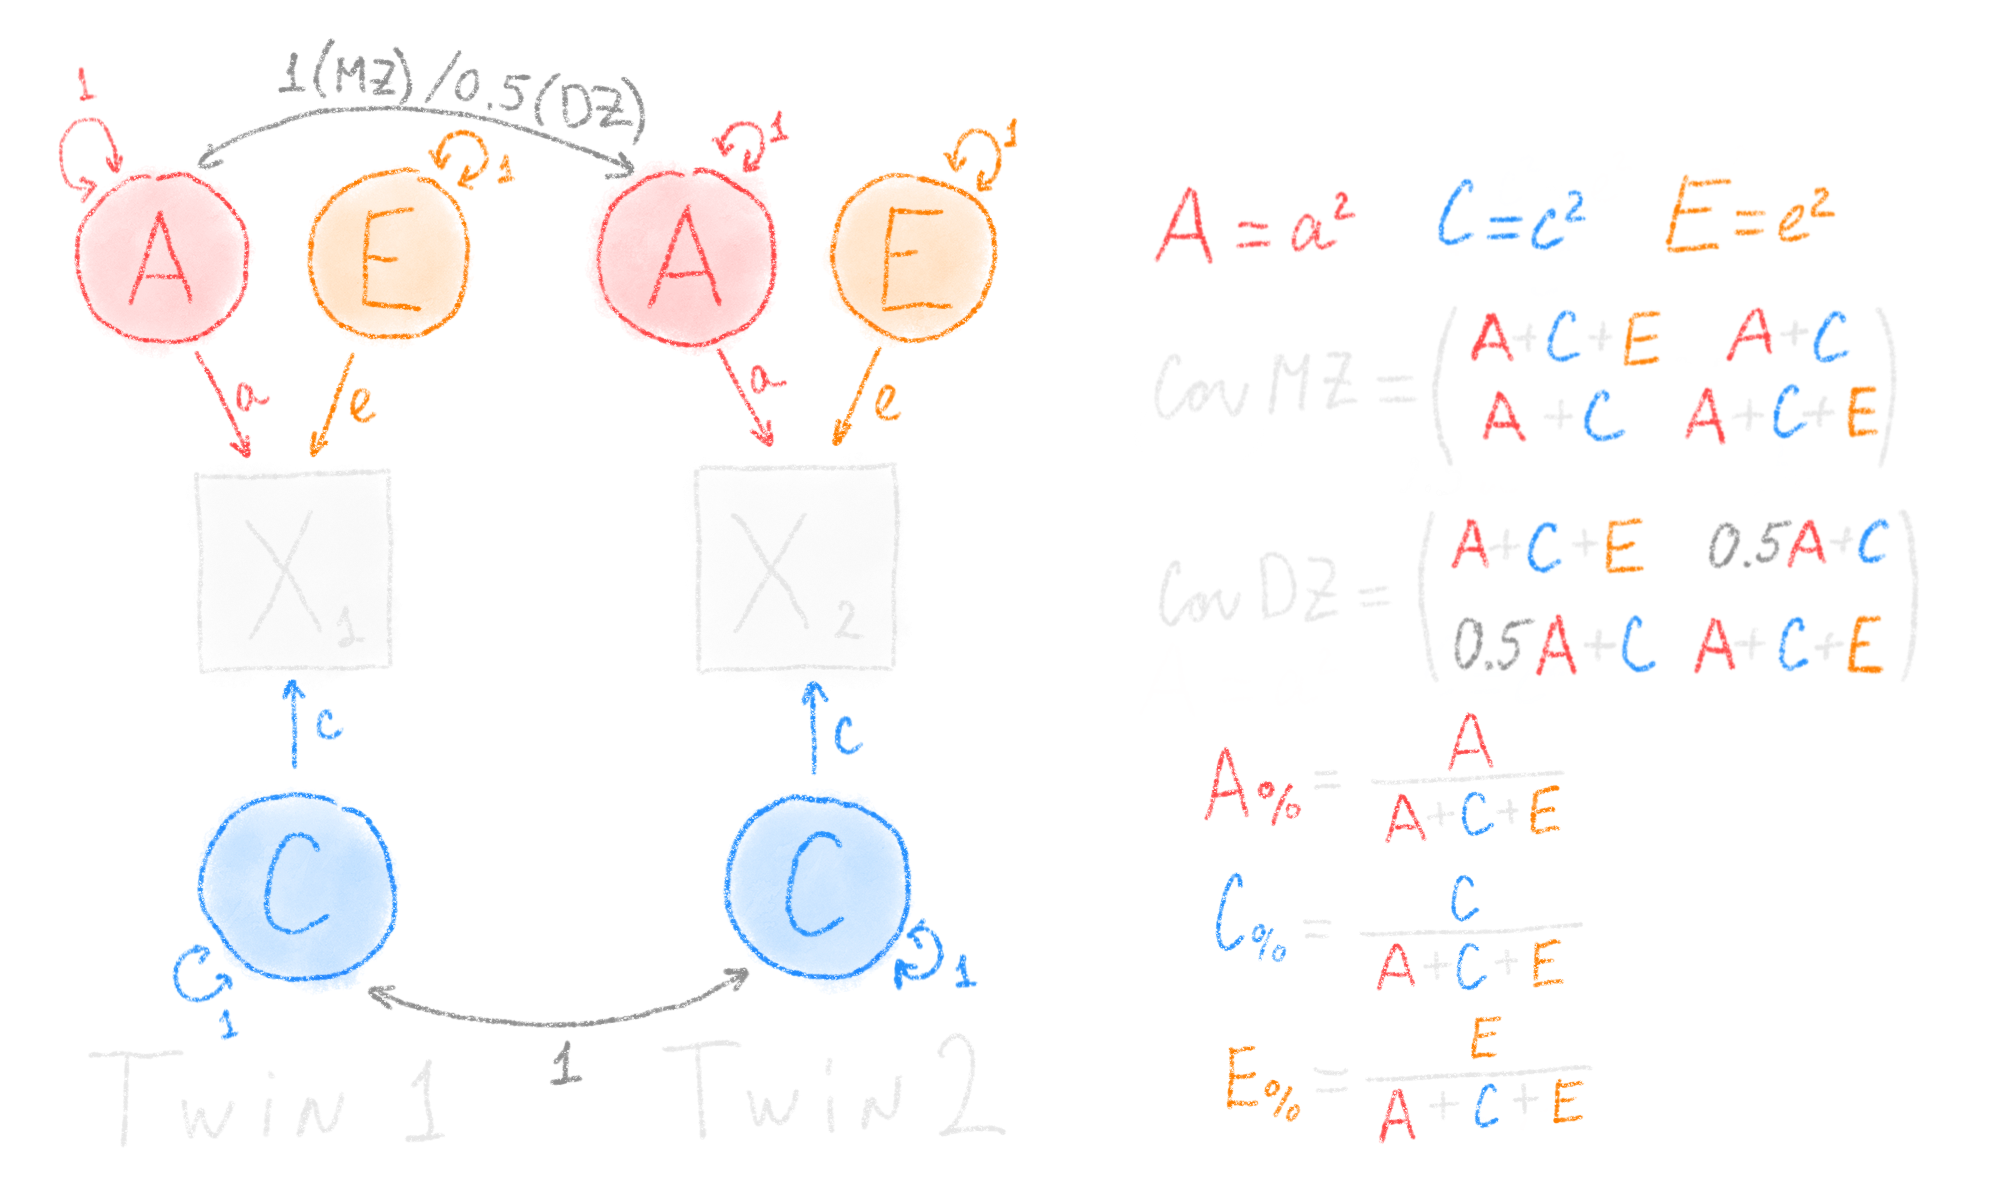 1(MZ)/0.5(DZ)
1
1
1
1
A
E
A
E
a
e
a
e
X1
X2
c
c
C
C
1
1
1
Twin 1
Twin 2
A = a²
C = c²
E = e²
Cov MZ = ( A+C+E A+C
A+C A+C+E )
Cov DZ = ( A+C+E 0.5A+C
0.5A+C A+C+E )
A% = A
A+C+E
C% = C
A+C+E
E% = E
A+C+E